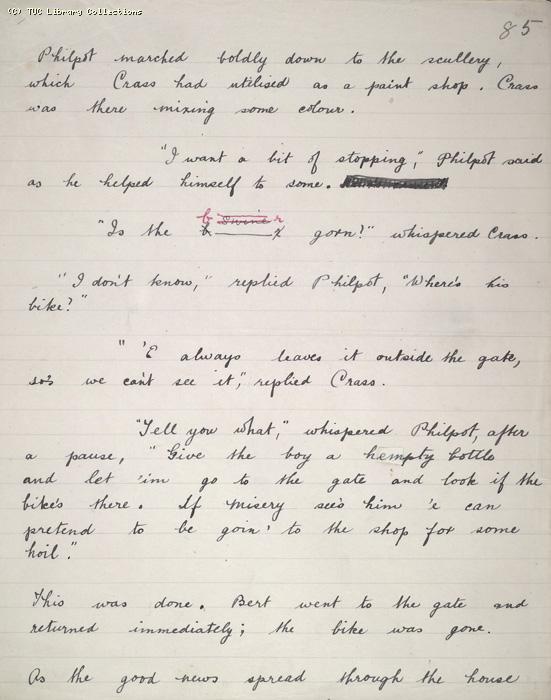 (C) TUC Library Collections
85
Philpot marched boldly down to the scullery,
which Crass had utilised as a paint shop. Crass
was there mixing some colour.
"I want a bit of stopping," Philpot said
as he helped himself to some.
b swine r
"Is the b——r gorn?" whispered Crass.
"I don't know," replied Philpot, "Where's his
bike?"
"'E always leaves it outside the gate,
so's we can't see it," replied Crass.
"Tell you what," whispered Philpot, after
a pause, "Give the boy a hempty bottle
and let 'im go to the gate and look if the
bike's there. If Misery sees him 'e can
pretend to be goin' to the shop for some
hoil."
This was done. Bert went to the gate and
returned immediately; the bike was gone.
As the good news spread through the house